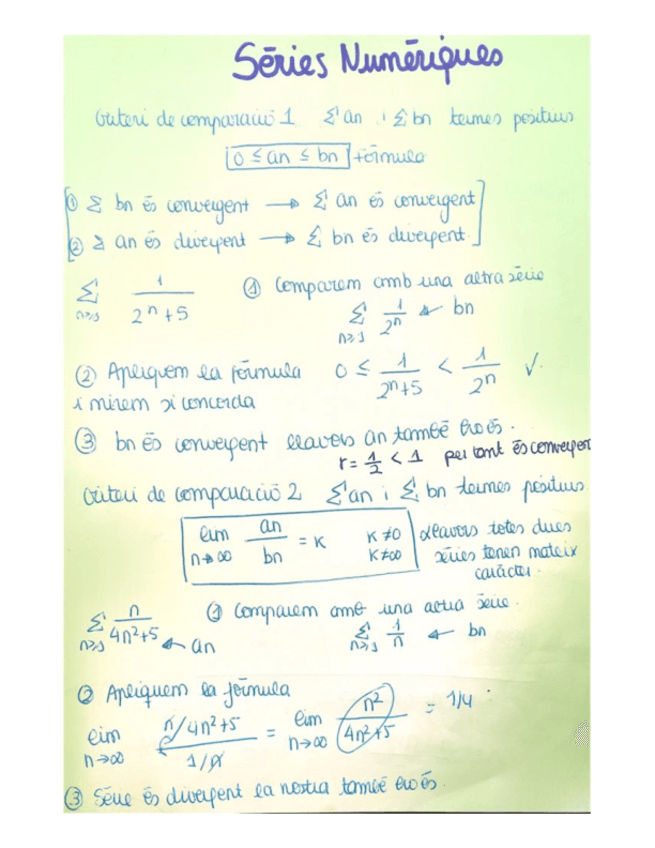 Sèries Numèriques
Criteri de comparació 1 Σ an i Σ bn termes positius
0 ≤ an ≤ bn fórmula
① Σ bn és convergent → Σ an és convergent
② Σ an és divergent → Σ bn és divergent
Σ n≥1 1/(2^n+5) ① Comparem amb una altra sèrie
Σ n≥1 1/2^n ← bn
② Apliquem la fórmula 0 ≤ 1/(2^n+5) < 1/2^n ✓.
i mirem si concorda
③ bn és convergent llavors an també ho és.
r = 1/2 < 1 per tant és convergent
Criteri de comparació 2 Σ an i Σ bn termes positius
lim n→∞ an/bn = K K≠0 K≠∞ Llavors totes dues
sèries tenen mateix
caràcter.
Σ n≥1 n/4n²+5 ← an ① Comparem amb una altra sèrie.
Σ n≥1 1/n ← bn
② Apliquem la fórmula
lim n→∞ n/4n²+5 / 1/n = lim n→∞ n²/4n²+5 = 1/4
③ Sèrie és divergent la nostra també ho és.